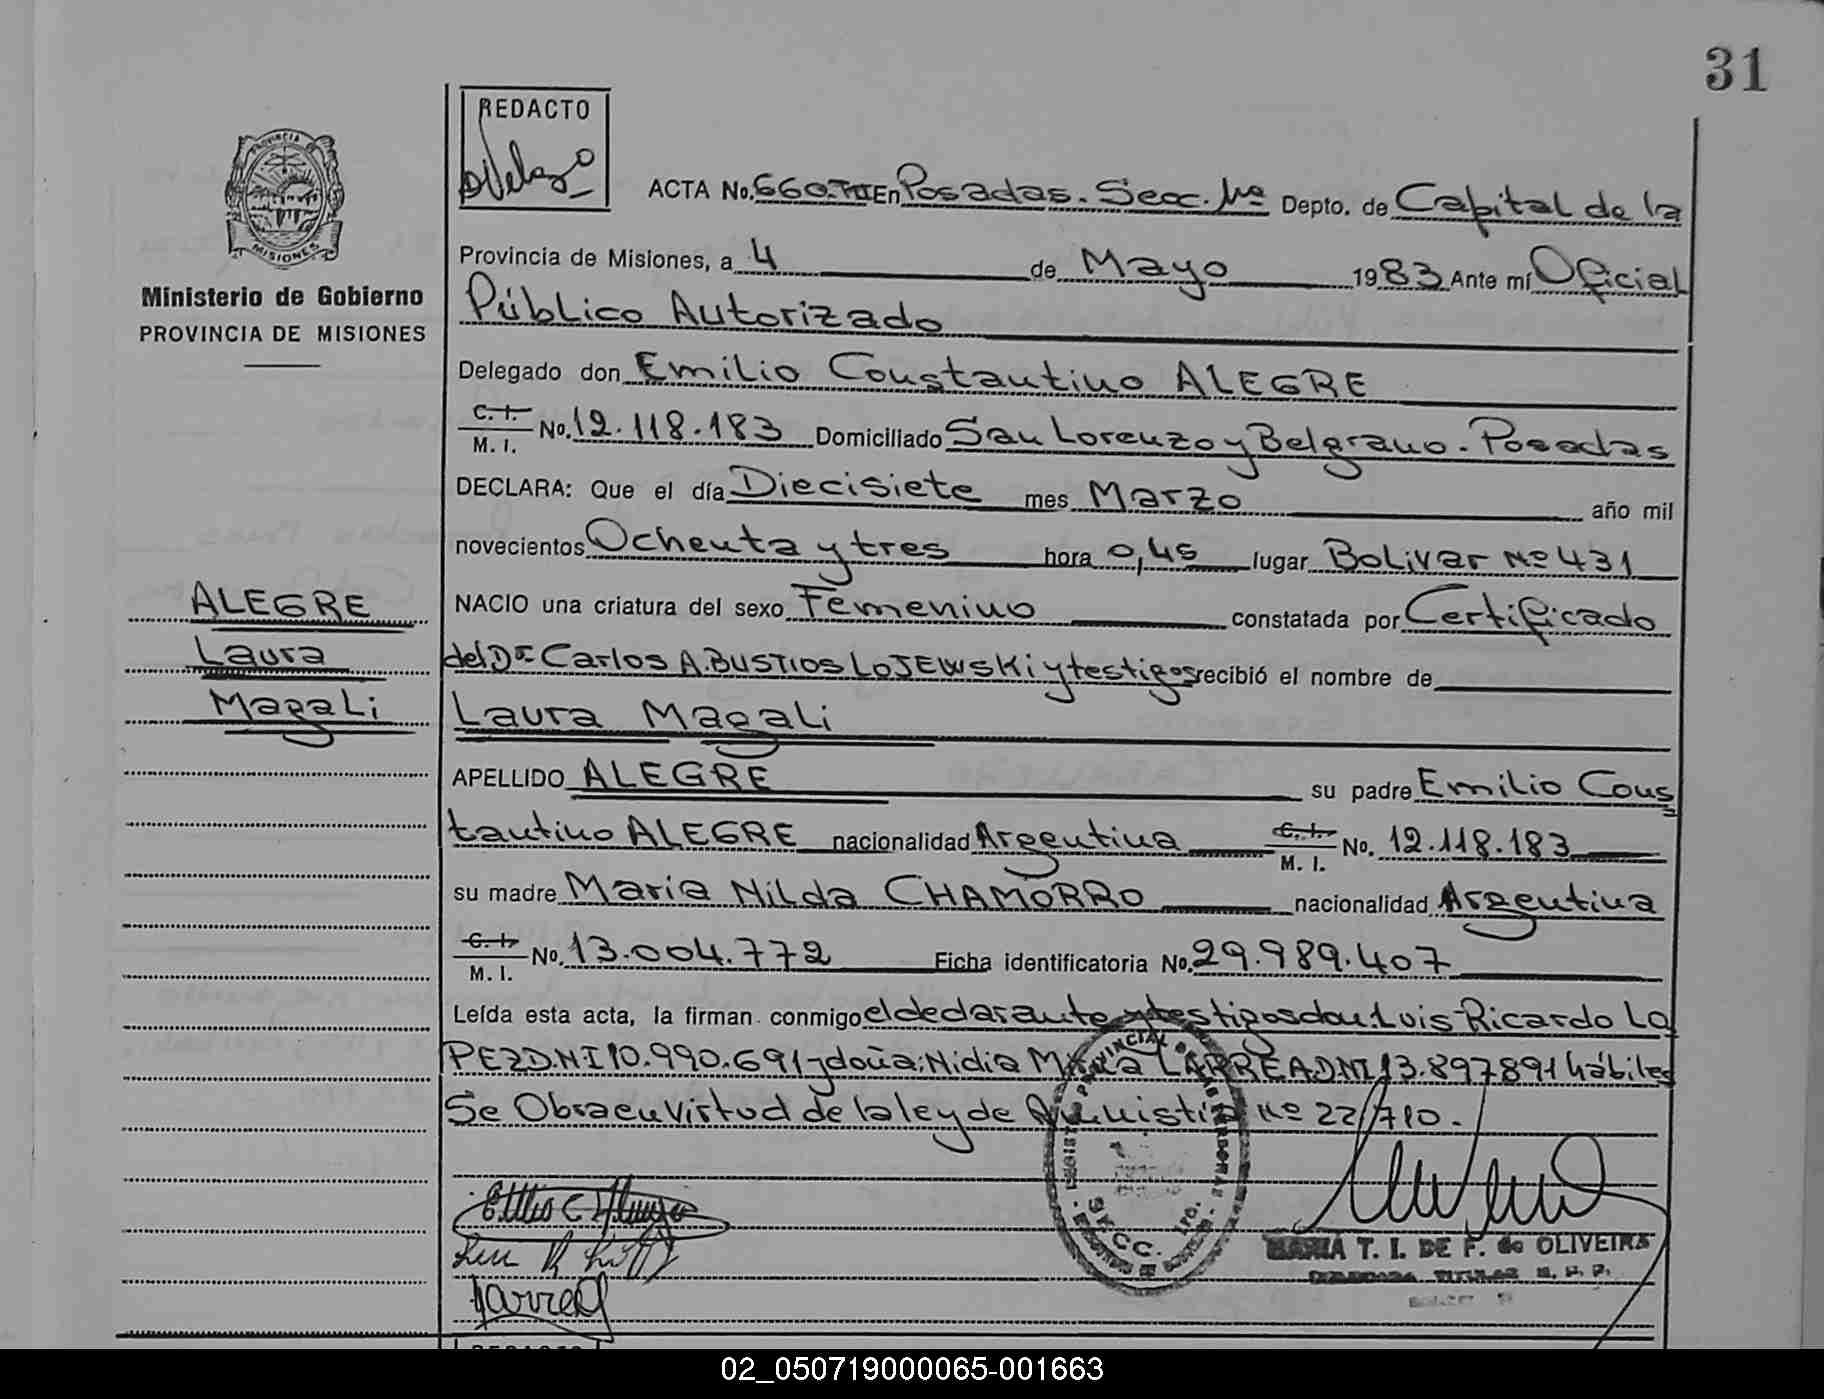 31
REDACTO
ACTA No. 660. TºII En Posadas. Secc. 1ra Depto. de Capital de la
Provincia de Misiones, a 4 de Mayo 1983 Ante mí Oficial
Público Autorizado
Ministerio de Gobierno
PROVINCIA DE MISIONES
Delegado don Emilio Constantino ALEGRE
C. I.
M. I. No. 12.118.183 Domiciliado San Lorenzo y Belgrano. Posadas
DECLARA: Que el día Diecisiete mes Marzo año mil
novecientos Ochenta y tres hora 0,45 lugar Bolivar Nº 431
NACIO una criatura del sexo Femenino constatada por Certificado
del Dr. Carlos A. BUSTIOS LOJEWSKi y testigos recibió el nombre de
Laura Magali
ALEGRE
Laura
Magali
APELLIDO ALEGRE su padre Emilio Cons
tantino ALEGRE nacionalidad Argentina C. I.
M. I. No. 12.118.183
su madre Maria Nilda CHAMORRO nacionalidad Argentina
C. I.
M. I. No. 13.004.772 Ficha identificatoria No. 29.989.407
Leída esta acta, la firman conmigo el declarante y testigos don: Luis Ricardo Lo
PEZ D.N.I 10.990.691 y doña: Nidia LARREA DNI 13.897891 hábiles
Se Obra en virtud de la ley de Amnistia Nº 22/710.
MARIA T. I. DE F. de OLIVEIRA
02_050719000065-001663